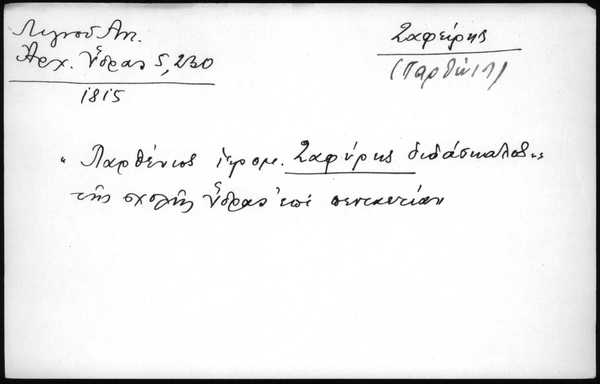 Λιγνοῦ Αν.
Ἀρχ. Ὕδρας 5, 230
1815
Σαφείρης
(Παρθένιος)
„ Παρθένιος ἱερομ. Σαφύρης διδάσκαλος „
τῆς σχολῆς Ὕδρας ἐπὶ πενταετίαν